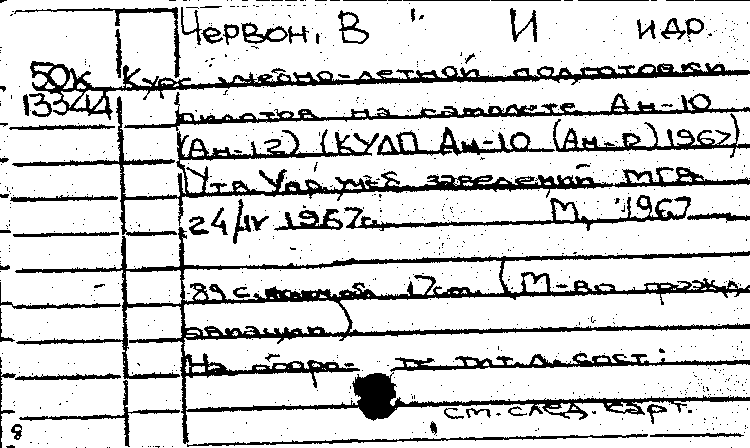 Червон, В И и др.
50к Курс учебно-летной подготовки
13344 пилотов на самолете Ан-10
(Ан-12) (КУЛП Ан-10 (Ан-12) 1967)
Утв Упр учеб. заведений МГА
24/IV 1967г. М, 1967
89 с. 17см. (М-во гражд.
авиации)
На оборо- тит. л. сост:
см. след. карт.
8